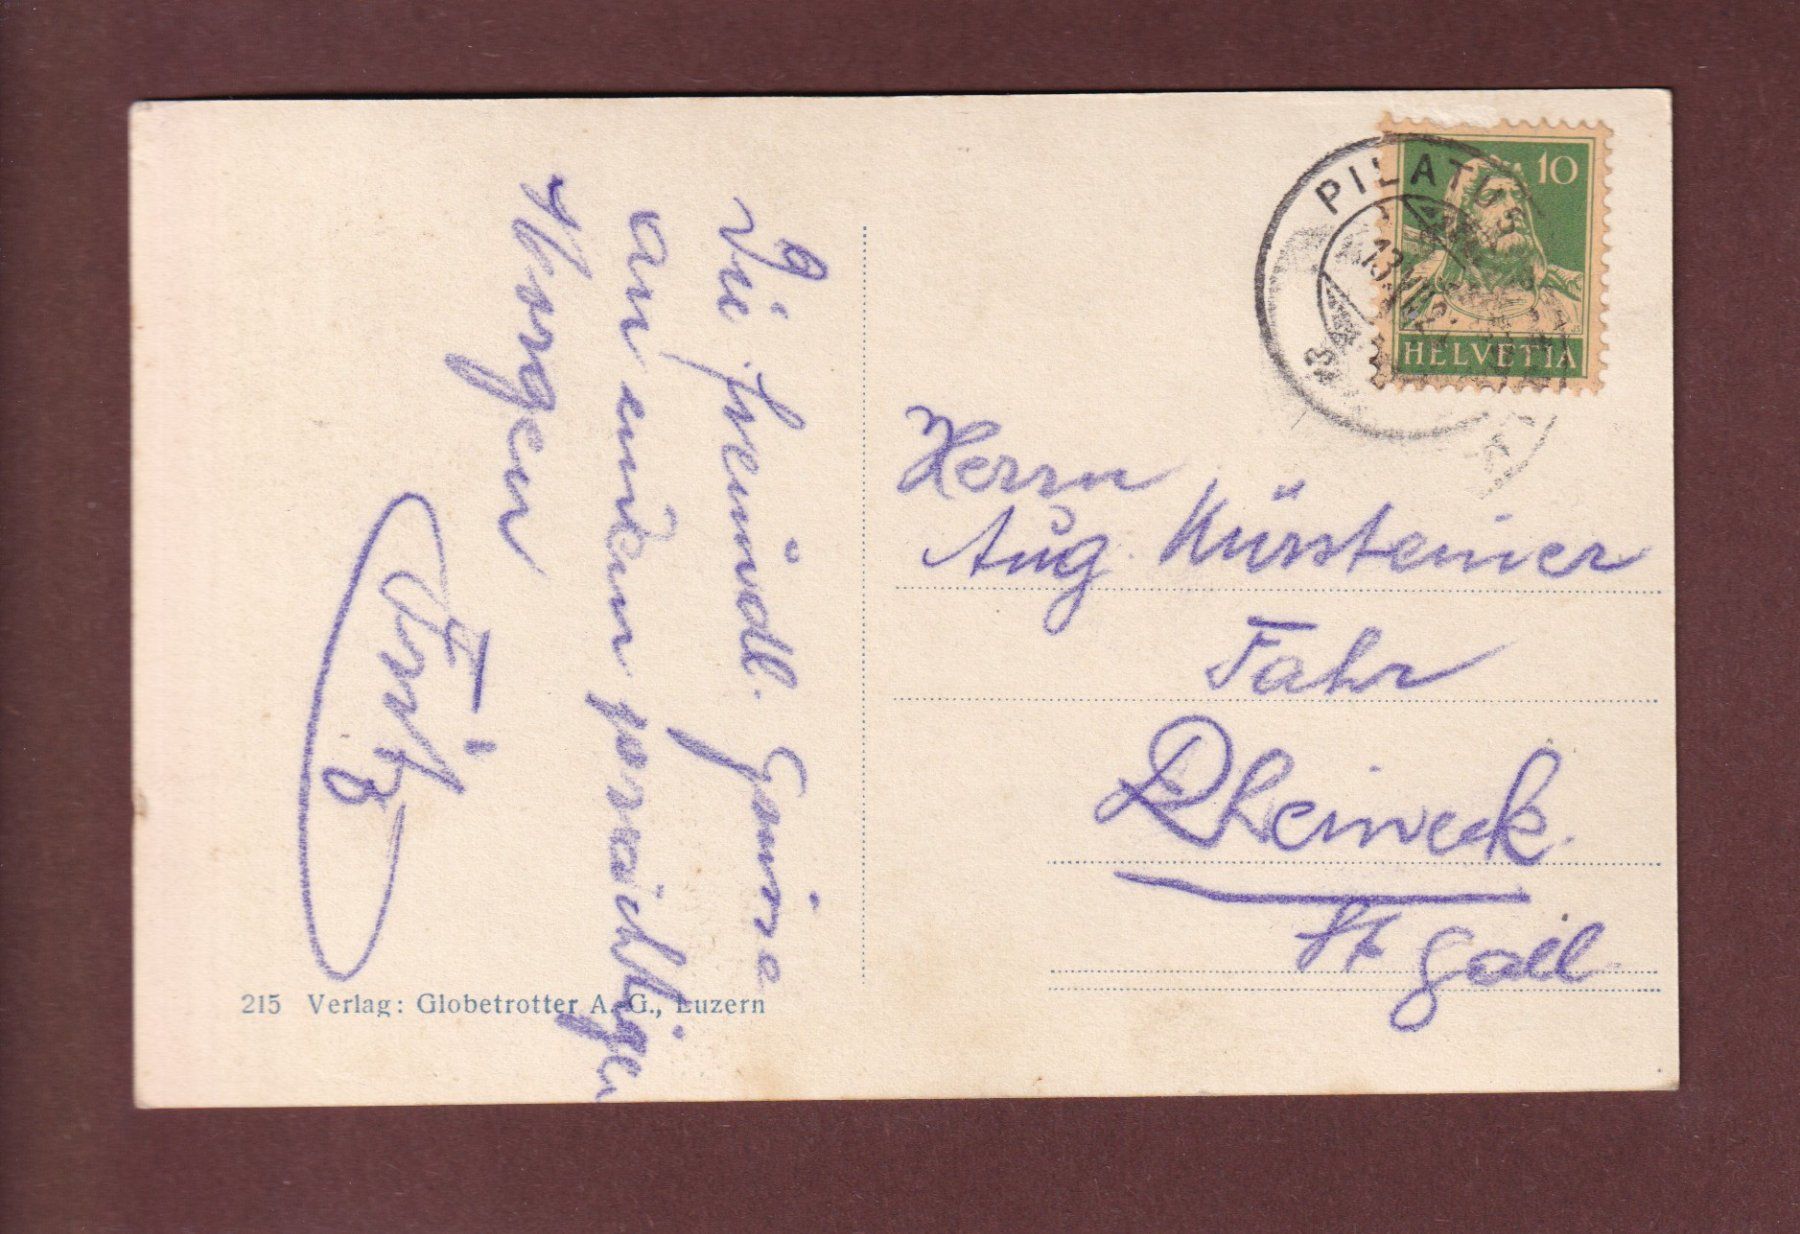 Die freundl. Grüsse
an einem prächtigen
Morgen
Fritz
215 Verlag: Globetrotter A. G., Luzern
PILATUS
10
HELVETIA
Herrn
Aug. Kürsteiner
Fahr
Rheineck.
St Gall.